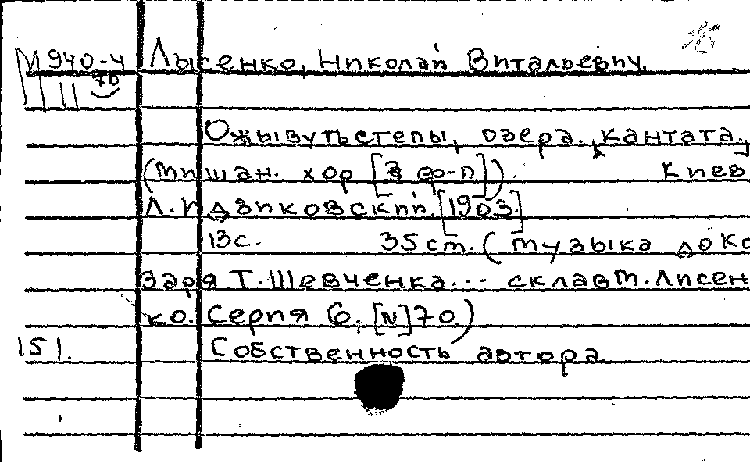 М 940-4 Лысенко, Николай Витальевич.
70
Ожывуть степы, озера., кантата.,
(мишан. хор [з фо-п]). Киев
Л. Идзиковский. [1903.]
13с. 35 ст. (музыка до ко
заря Т. Шевченка... склав М. Лисен
ко. Серия 6. [N] 70.)
151. Собственность автора.